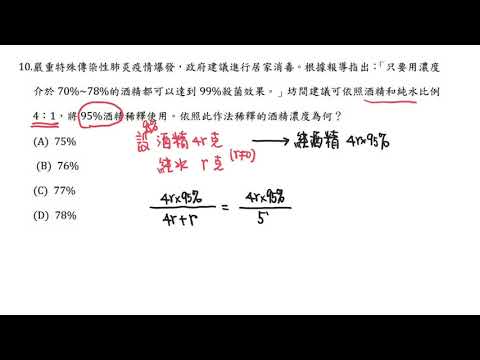 10.嚴重特殊傳染性肺炎疫情爆發，政府建議進行居家消毒。根據報導指出：「只要用濃度
介於 70%~78%的酒精都可以達到 99%殺菌效果。」坊間建議可依照酒精和純水比例
4：1，將 95%酒精稀釋使用。依照此作法稀釋的酒精濃度為何？
(A) 75%
(B) 76%
(C) 77%
(D) 78%
95%
設 酒精 4r克 → 純酒精 4r×95%
純水 r克 (r≠0)
4r×95% / 4r+r = 4r×95% / 5